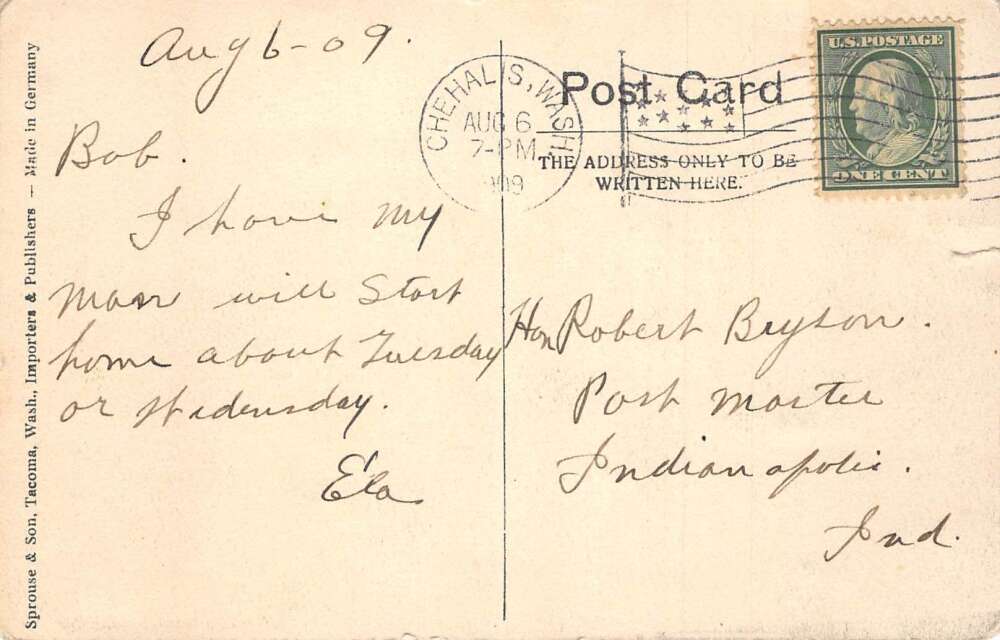 Aug 6-09.
Bob.
I have my
man will start
home about Tuesday
or Wedensday.
Ela
Sprouse & Son, Tacoma, Wash., Importers & Publishers — Made in Germany
CHEHALIS, WASH.
AUG 6
7-PM
1909
Post Card
THE ADDRESS ONLY TO BE
WRITTEN HERE.
U.S. POSTAGE
ONE CENT
Hon Robert Bryson.
Post master
Indianapolis.
Ind.